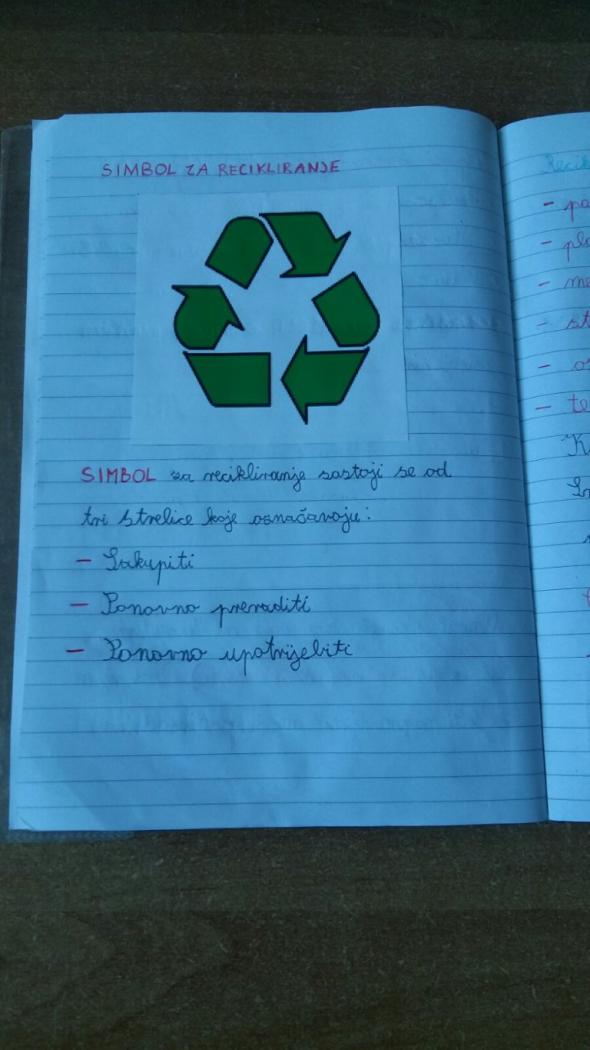 SIMBOL ZA RECIKLIRANJE
SIMBOL za recikliranje sastoji se od
tri strelice koje označavaju:
- Sakupiti
- Ponovno preraditi
- Ponovno upotrijebiti
Recik
- pa
- pla
- me
- st
- o
- te